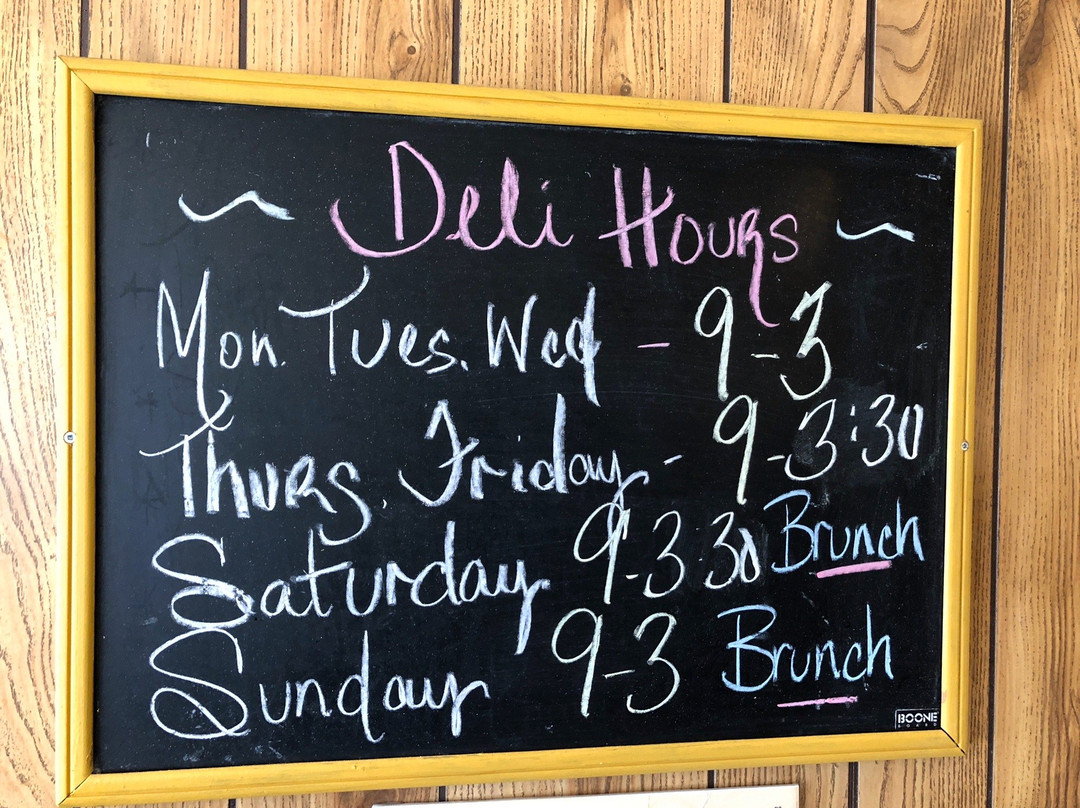 ~ Deli Hours ~
Mon. Tues. Wed - 9-3
Thurs. Friday - 9-3:30
Saturday 9-3:30 Brunch
Sunday 9-3 Brunch
BOONE
BOARD